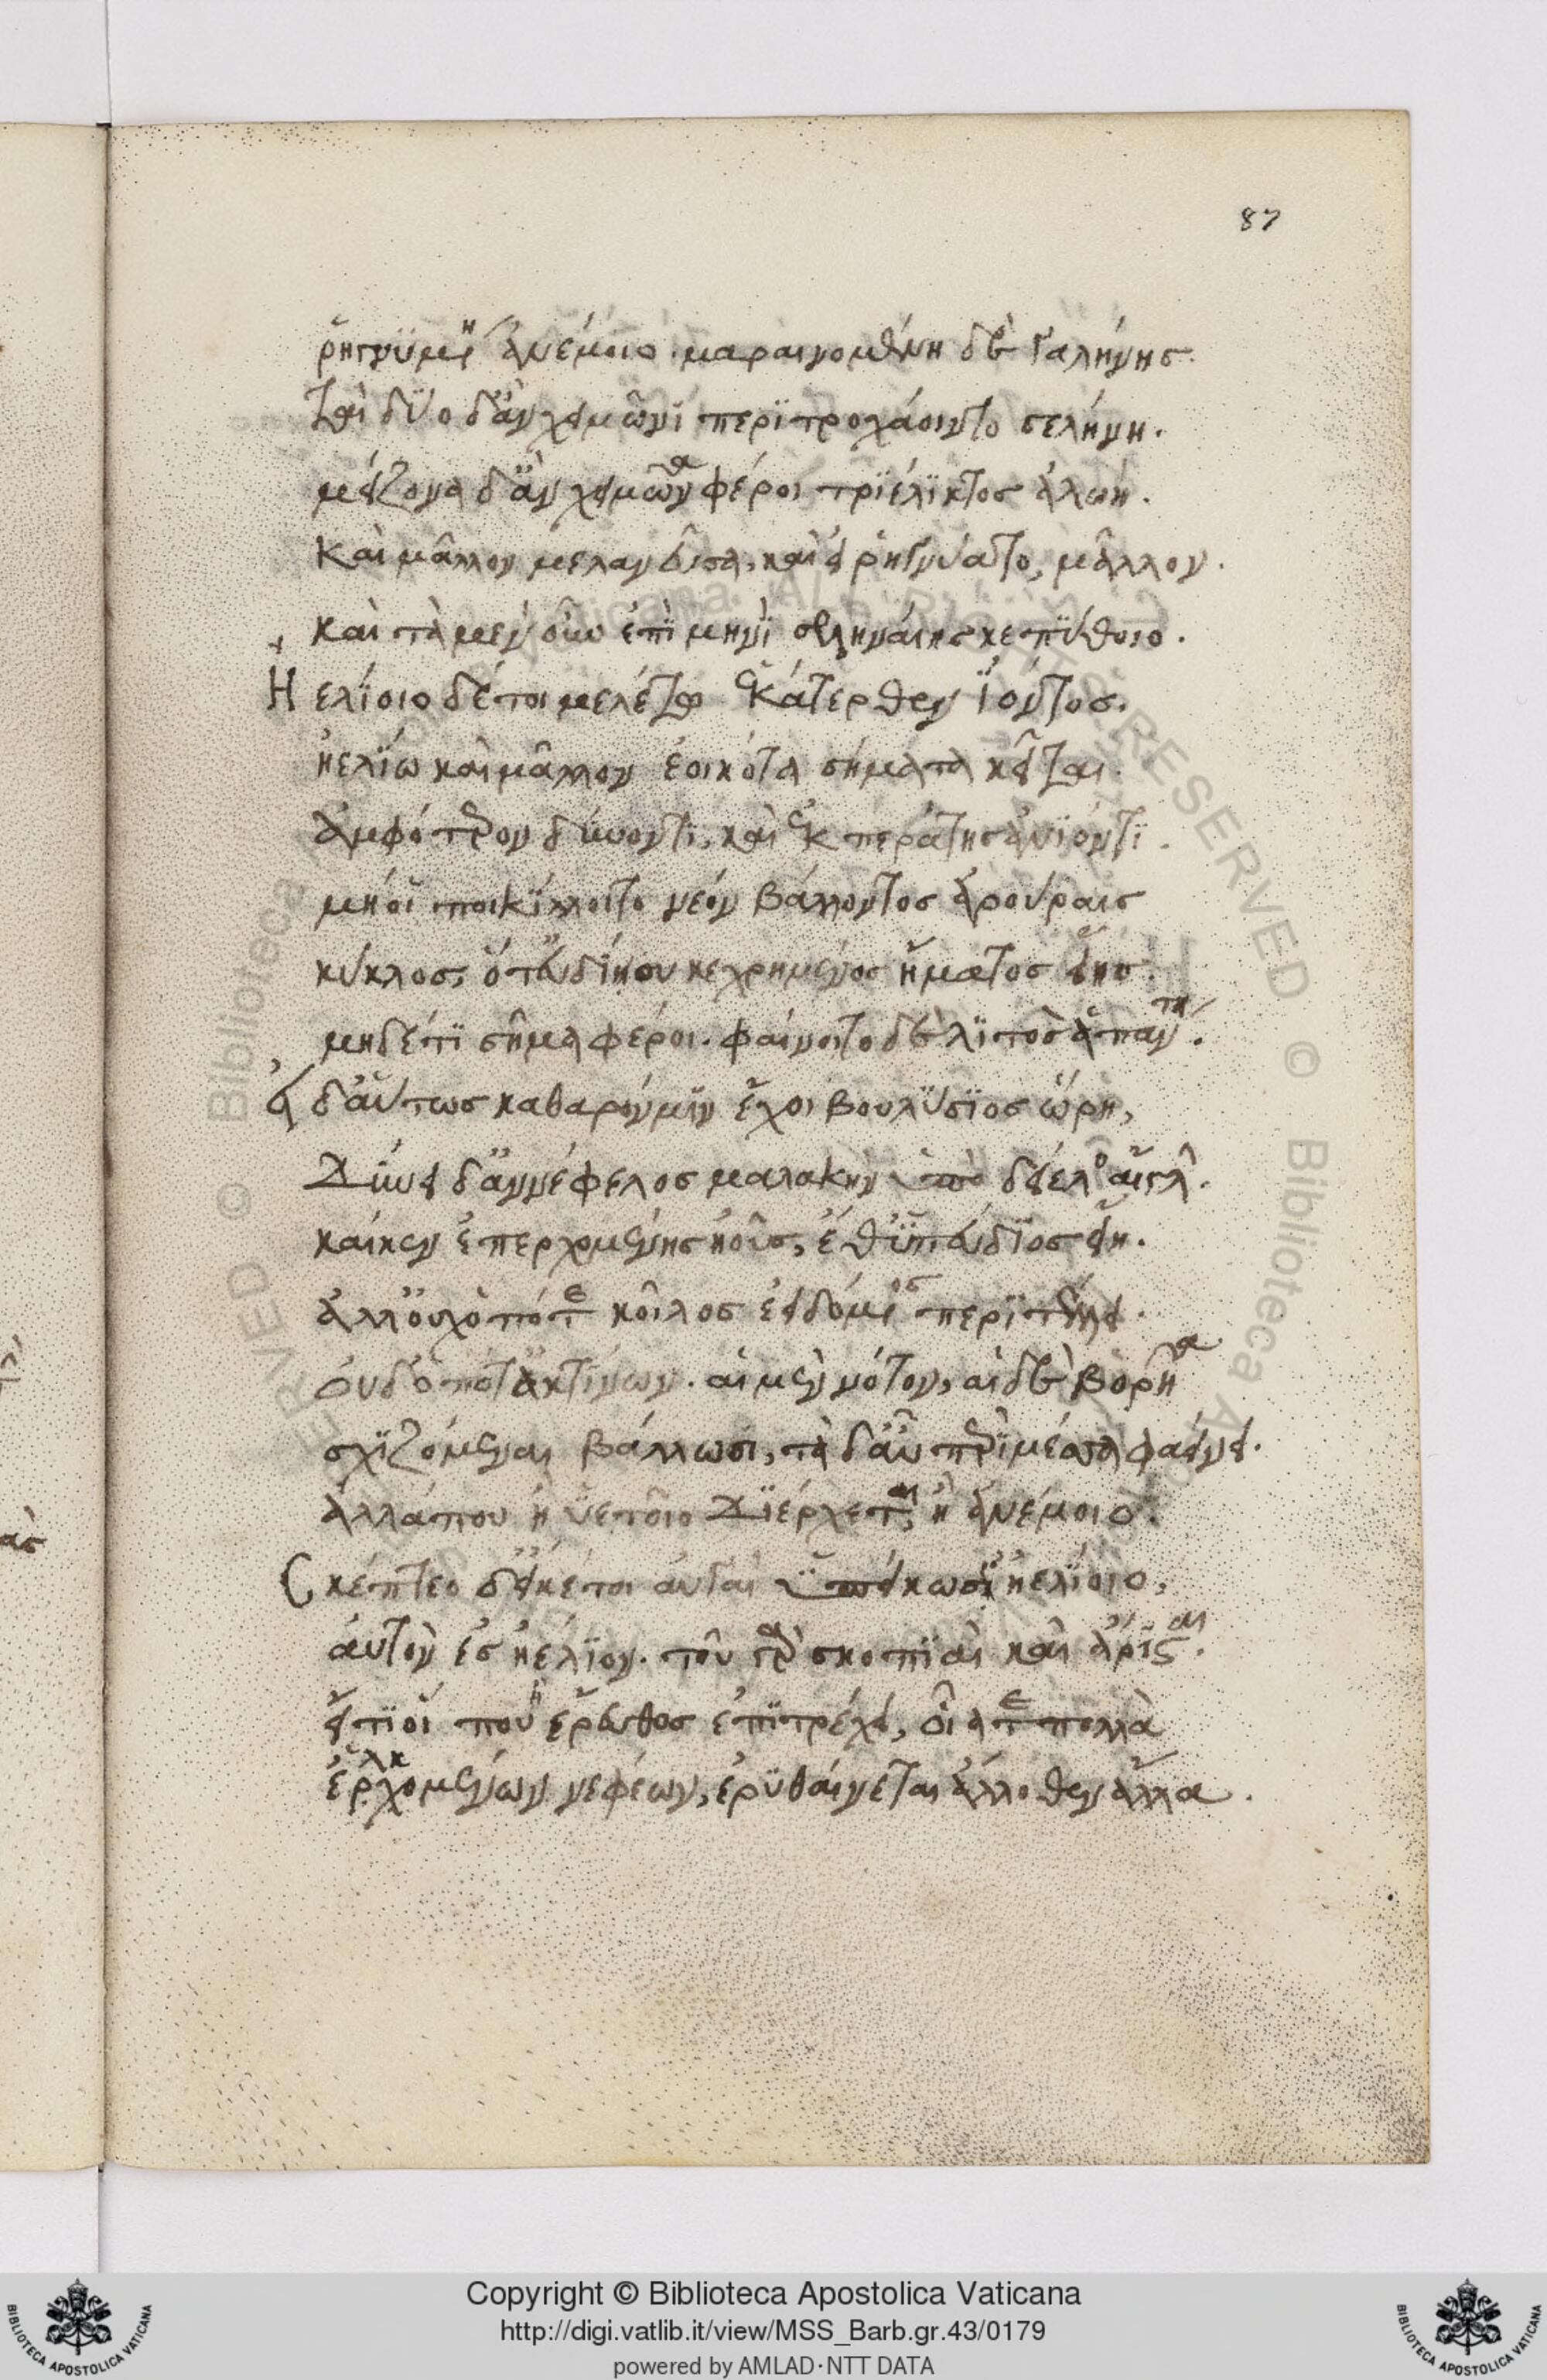 87
ῥηγνυμένη ἀνέμοιο. μαραινομένη δὲ γαλήνης.
ταὶ δύο δ' ἂν χειμῶνι περιτροχάοιντο σελήνη.
μείζονα δ' ἂν χειμῶνα φέροι τριέλικτος ἀλωή.
καὶ μᾶλλον μελανεῦσα, καὶ εἰ ῥηγνύατο, μᾶλλον.
καὶ τὰ μὲν οὖν ἐπὶ μηνὶ σεληναίης κε πύθοιο.
Ηελίοιο δέ τοι μελέτω ἑκάτερθεν ἰόντος.
ἠελίω καὶ μᾶλλον ἐοικότα σήματα κεῖται
ἀμφότερον δύνοντι, καὶ ἐκ περάτης ἀνιόντι.
μή οἱ ποικίλλοιτο νέον βάλλοντος ἀρούραις
κύκλος, ὅτ' ἂν εὐδίου κεχρημένος ἤματος εἴης.
μηδ' ἔτι σῆμα φέροι. φαίνοιτο δὲ λιτὸς ἁπάντη.
εἰ δ' αὔτως καθαρόν μιν ἔχοι βουλύσιος ὥρη,
δύνει δ' ἀννέφελος μαλακὴν ὑπὸ δείελον αἴγλ.
καί κεν ἐπερχομένης ἠοῦς, ἔθ' ὑπεύδιος εἴη.
ἀλλ' οὐχ ὁπότε κοῖλος ἐειδόμενος περιτέλλει.
οὐδ' ὁπότ' ἀκτίνων. αἱ μὲν νότον, αἱ δὲ βορῆα
σχιζόμεναι βάλλωσι, τὰ δ' αὖ περὶ μέσσα φαείνει.
ἀλλά που ἢ ὑετοῖο διέρχεται, ἢ ἀνέμοιο.
Σκέπτεο δ' εἴ κέ τοι αὐταὶ ὑπείκωσ' ἠελίοιο,
αὐτὸν ἐς ἠέλιον. τοῦ γὰρ σκοπιαὶ καὶ ἄρισται.
εἴ τι οἱ που ἢ ἔρευθος ἐπιτρέχει, οἷά τε πολλὰ
ἑλκ
ἐρχομένων νεφέων, ἐρυθαίνεται ἄλλοθεν ἄλλα.
Copyright © Biblioteca Apostolica Vaticana
http://digi.vatlib.it/view/MSS_Barb.gr.43/0179
powered by AMLAD·NTT DATA